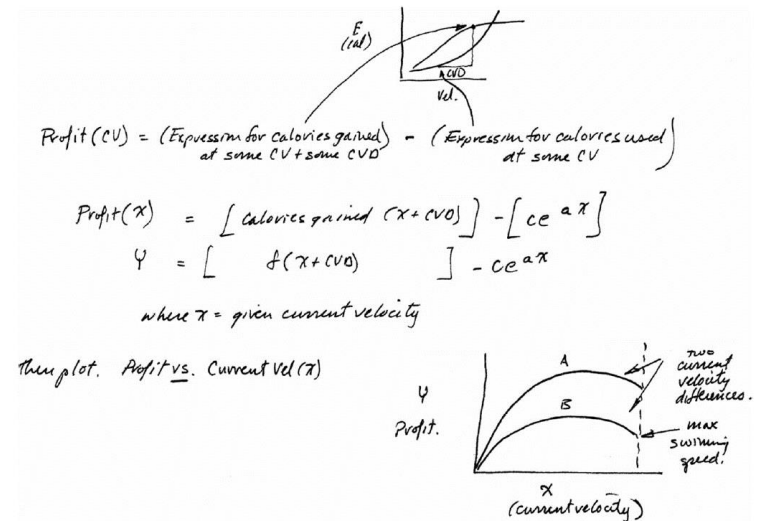 E
(cal)
CVD
Vel.
Profit (CV) = (Expression for calories gained) - (Expression for calories used)
at some CV + some CVD at some CV
Profit (x) = [calories gained (x + CVD)] - [ce^ax]
Y = [ f(x + CVD) ] - ce^ax
where x = given current velocity
Then plot. Profit vs. Current Vel (x)
Y
Profit.
A
B
two
current
velocity
differences.
max
swimming
speed.
x
(current velocity)